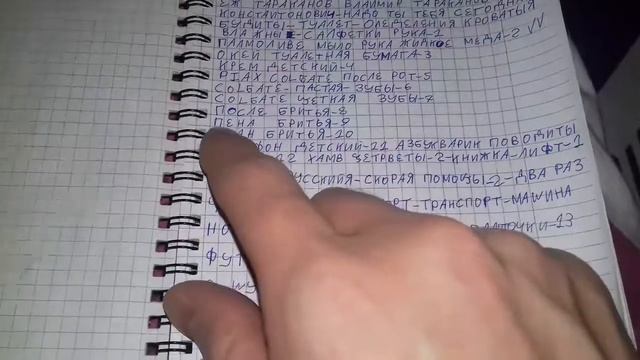 ЕЖ ТАРАКАНОВ ВЛАИМИР ТАРАКАНОВ
КОНСТАИТОНОВИЧ-НАДО ТЫ ТЕБЯ СЕГОДН
БУДИТЫ-ТУАЛЕТ-ОПЕДЕЛЕНИЯ КРОВАТЫЯ
ВЛАЖНЫЕ-САЛФЕТКИ РУКА-1
ПАЛМОЛИВЕ МЫЛО РУКА ЖИДКОЕ МЕДА-2 VV
О КЕЙ ТУАЛЕТНАЯ БУМАГА-3
КРЕМ ДЕТСКИЙ-4
PIAX COLGATE ПОСЛЕ РОТ-5
COLGATE-ПАСТАЯ-ЗУБЫ-6
COLGATE ЩЕТКАЯ ЗУБЫ-7
ПОСЛЕ БРИТЬЯ-8
ПЕНА БРИТЬЯ-9
АН БРИТЬЯ-10
ФОН ДЕТСКИЙ-11 АЗБУКВАРИК ПОВОДИТЫ
12 ХАМВ ЦЕТРВЕТЫ-2-КНИЖКА-ЛИФТ-1
УССКИЙЯ-СКОРАЯ ПОМОЩЫ-2-ДВА РАЗ
ОРТ-ТРАНСПОРТ-МАШИНА
НО ПЛАТОЧКИ-13
ФУТ